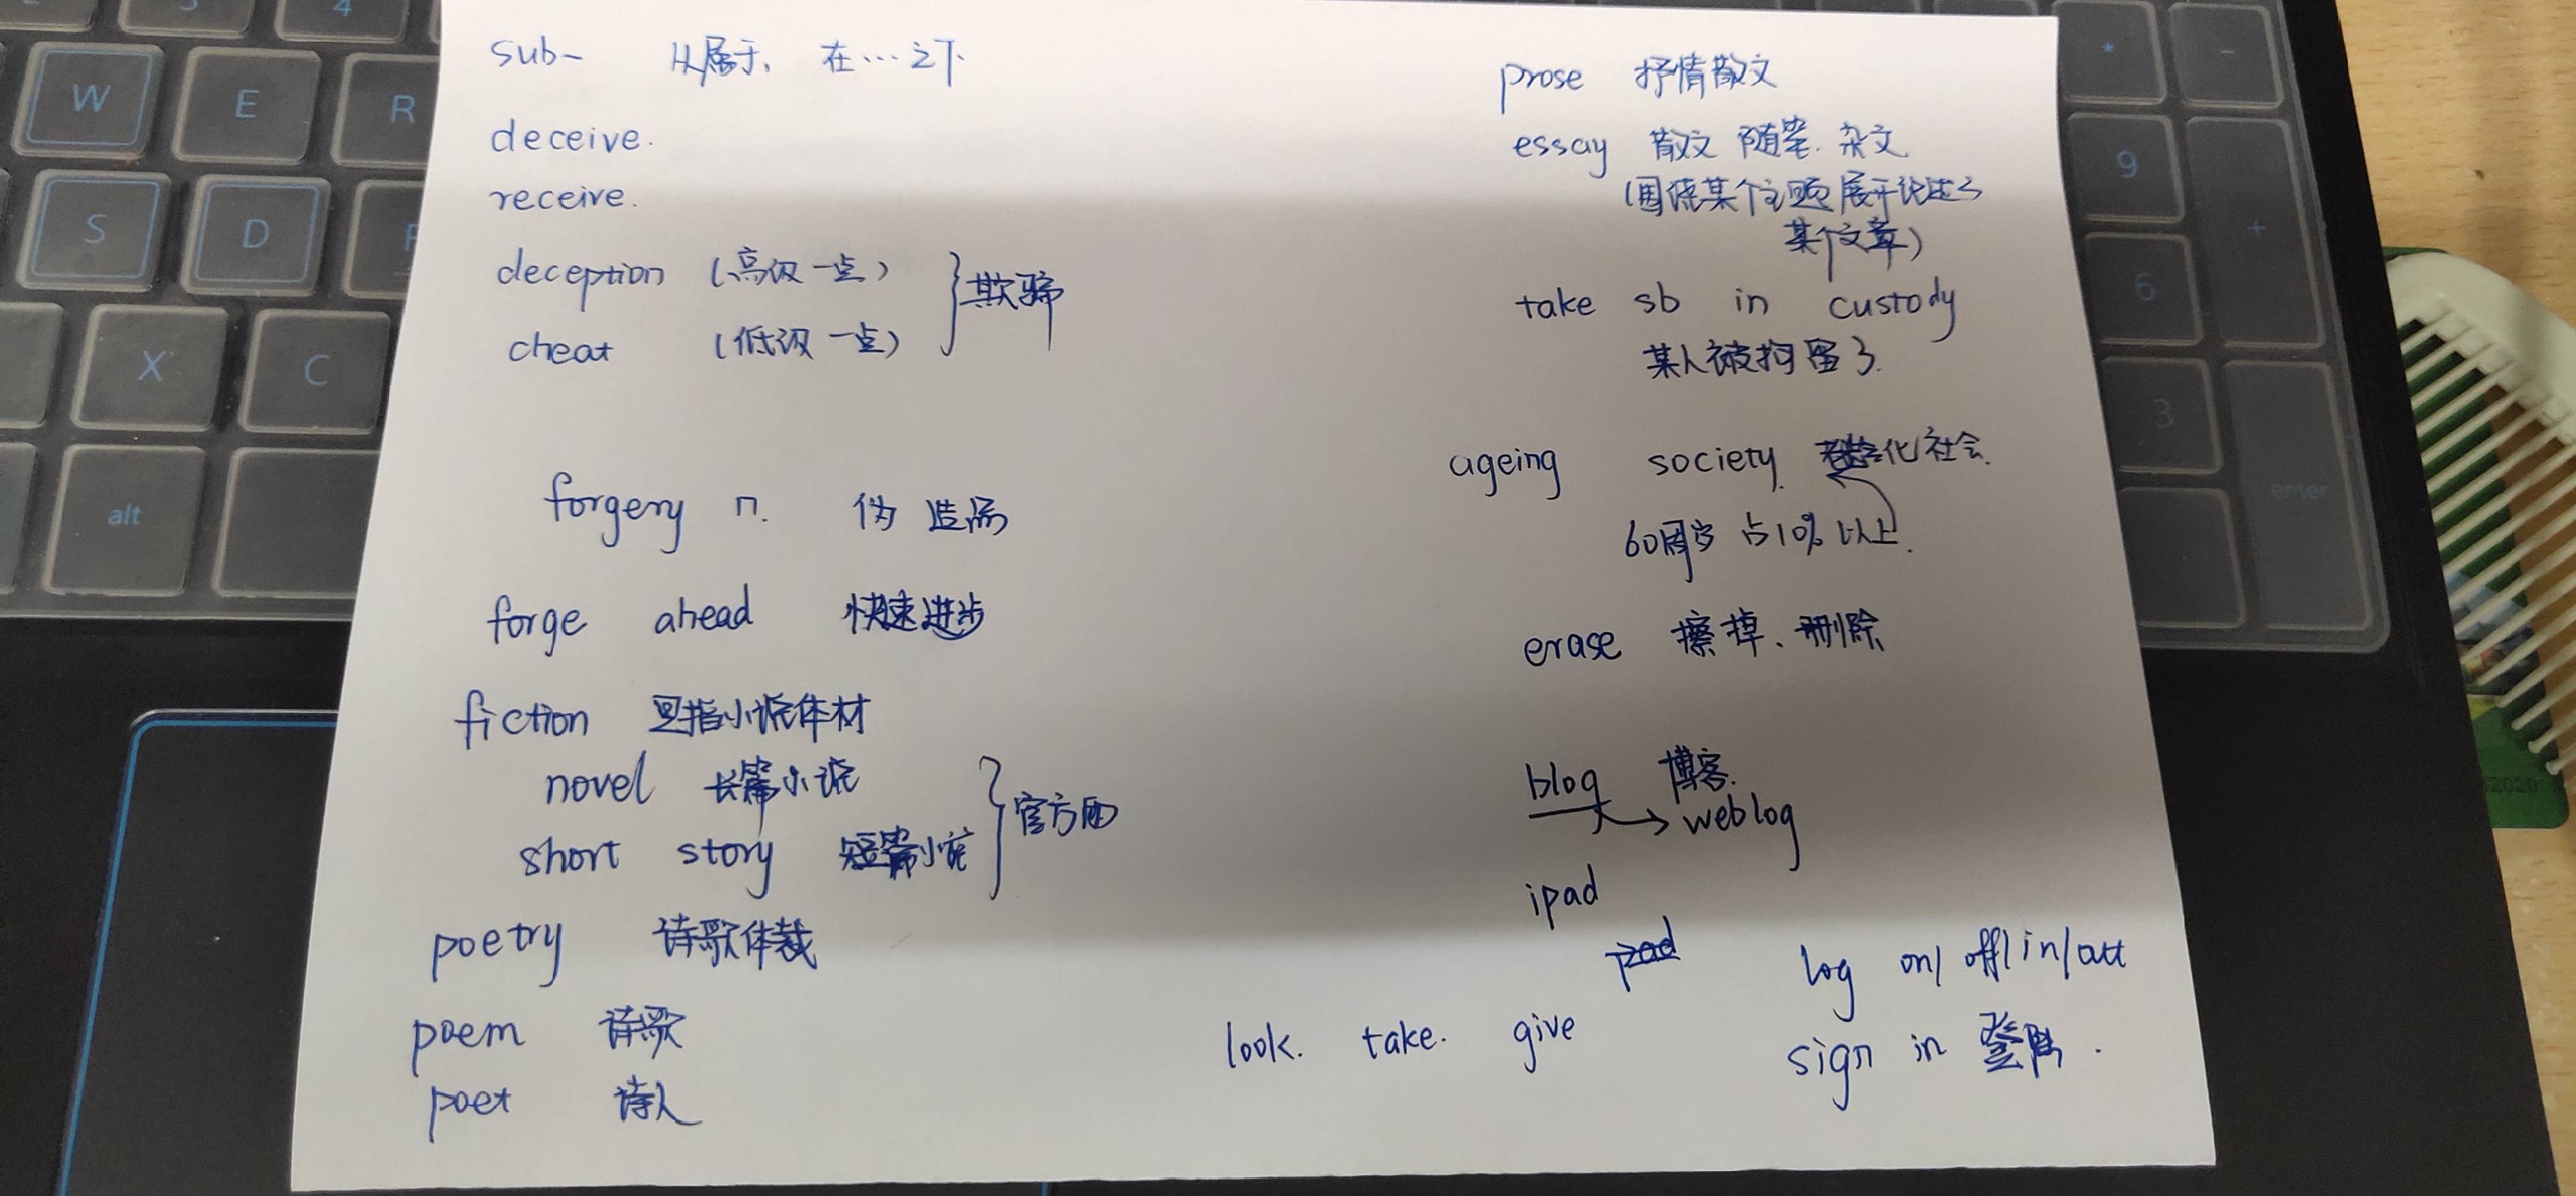 sub- 从属于, 在…之下
deceive.
receive.
deception (高级一点)
cheat (低级一点)
欺骗
forgery n. 伪造品
forge ahead 快速进步
fiction 是指小说体材
novel 长篇小说
short story 短篇小说
官方的
poetry 诗歌体裁
poem 诗歌
poet 诗人
prose 抒情散文
essay 散文 随笔. 杂文
(围绕某个主题展开论述了
某个文章)
take sb in custody
某人被拘留了.
ageing society 老龄化社会.
60周岁 占10%以上.
erase 擦掉、删除
blog 博客.
weblog
ipad
pad
log on/off/in/out
look. take. give
sign in 登陆.
W
E
R
S
D
X
C
alt
9
6
3
+
*
-
enter